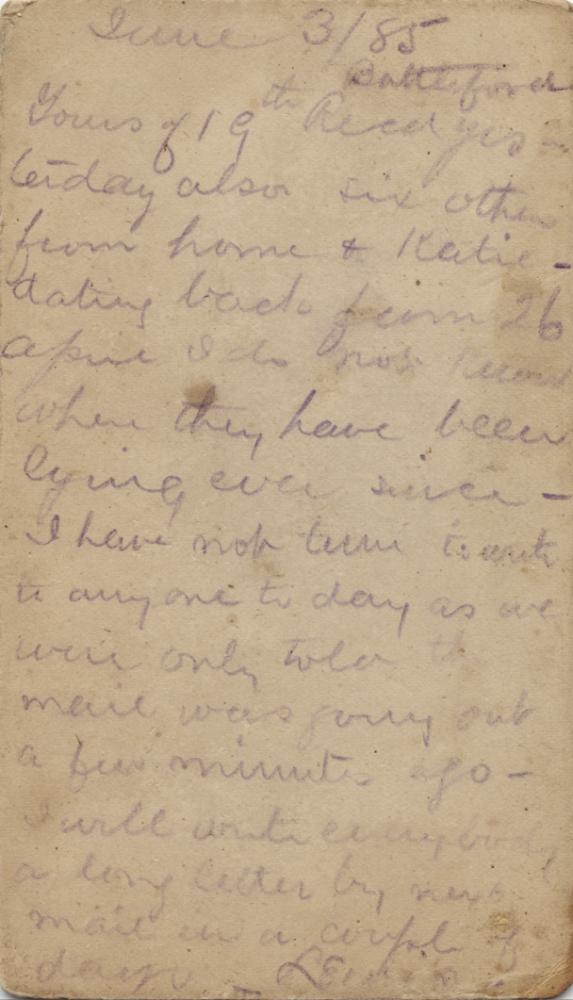 June 3/85
Battleford
Yours of 19th Recd yes-
terday also six other
from home & Katie -
dating back from 26
April I do not know
where they have been
lying ever since -
I have not time to write
to any one to day as we
were only told the
mail was going out
a few minutes ago -
I will write everybody
a long letter by next
mail in a couple of
days -